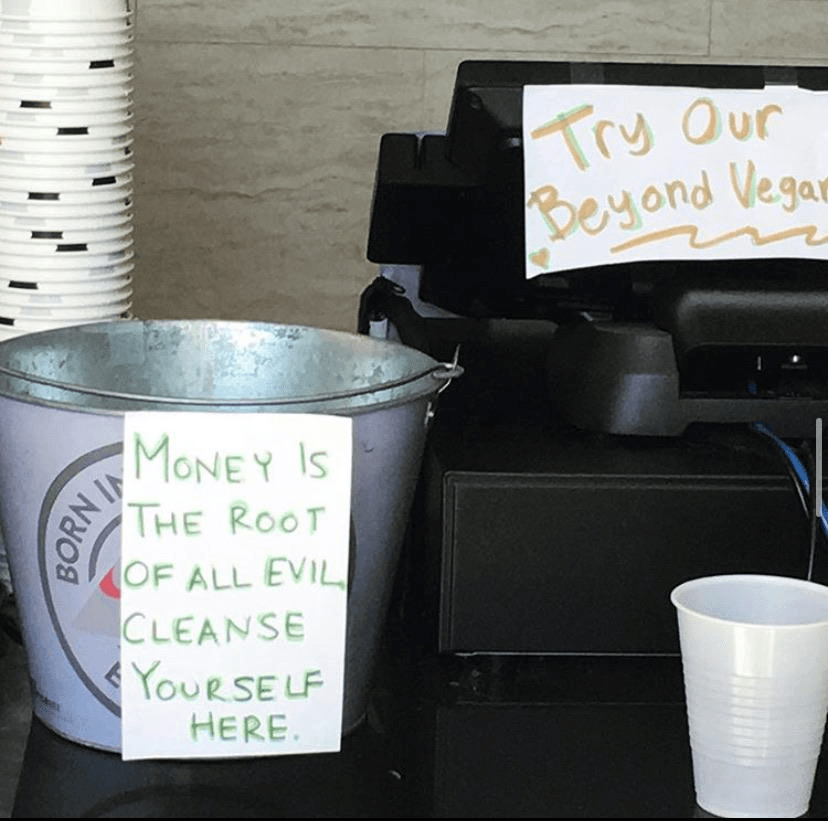 Try Our
Beyond Vegan
BORN IN
MONEY IS
THE ROOT
OF ALL EVIL
CLEANSE
YOURSELF
HERE.